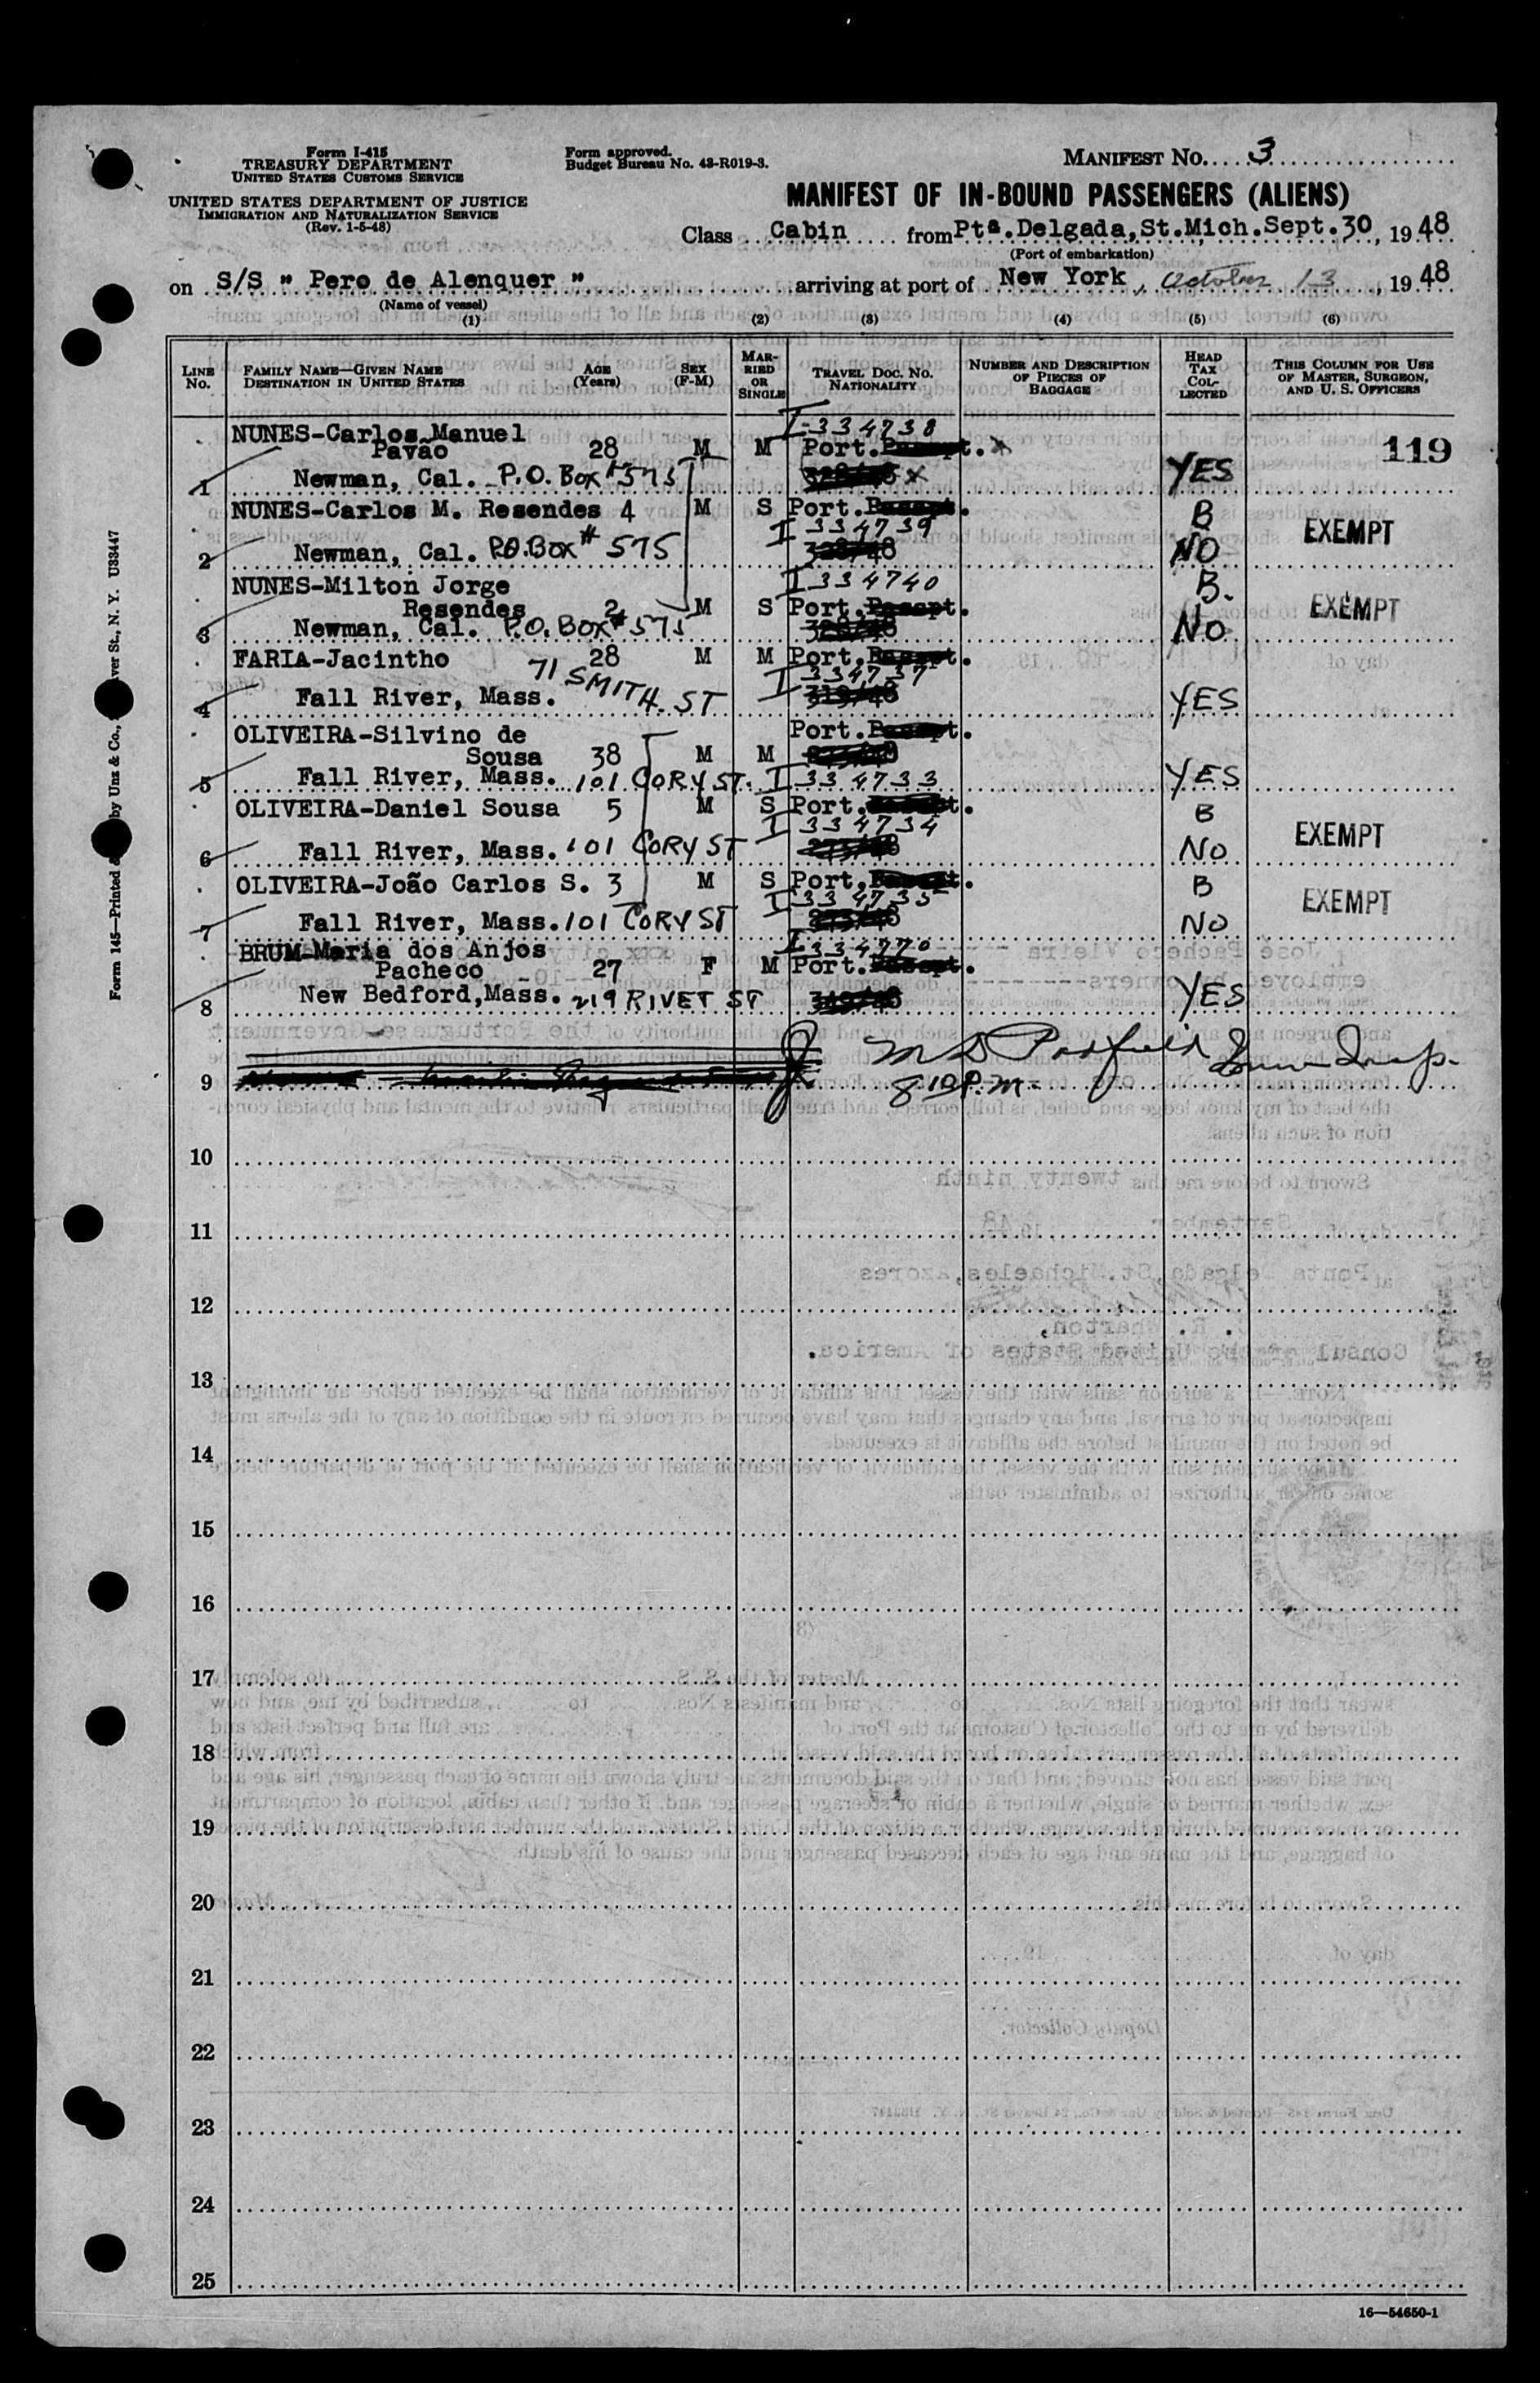 Form I-415
TREASURY DEPARTMENT
UNITED STATES CUSTOMS SERVICE
UNITED STATES DEPARTMENT OF JUSTICE
IMMIGRATION AND NATURALIZATION SERVICE
(Rev. 1-5-48)
Form approved.
Budget Bureau No. 43-R019-3.
MANIFEST No. 3
MANIFEST OF IN-BOUND PASSENGERS (ALIENS)
Class Cabin from Ptª. Delgada, St. Mich. Sept. 30, 1948
(Port of embarkation)
on S/S " Pero de Alenquer " arriving at port of New York, October 13, 1948
(Name of vessel)
(1) (2) (3) (4) (5) (6)
LINE No. FAMILY NAME—GIVEN NAME DESTINATION IN UNITED STATES AGE (Years) SEX (F-M) MARRIED OR SINGLE TRAVEL DOC. NO. NATIONALITY NUMBER AND DESCRIPTION OF PIECES OF BAGGAGE HEAD TAX COLLECTED THIS COLUMN FOR USE OF MASTER, SURGEON, AND U. S. OFFICERS
NUNES-Carlos Manuel I-334738
Pavão 28 M M Port. x 119
1 Newman, Cal. P.O. Box #575 x YES
NUNES-Carlos M. Resendes 4 M S Port. B EXEMPT
I 334739
2 Newman, Cal. P.O. Box # 575 NO
NUNES-Milton Jorge I 334740 B.
Resendes 2 M S Port. EXEMPT
3 Newman, Cal. P.O. Box # 575 No
FARIA-Jacintho 28 M M Port.
71 SMITH. ST I 334737
4 Fall River, Mass. YES
OLIVEIRA-Silvino de Port.
Sousa 38 M M
5 Fall River, Mass. 101 CORY ST. I 334733 YES
OLIVEIRA-Daniel Sousa 5 M S Port. B
I 334734 EXEMPT
6 Fall River, Mass. 101 CORY ST No
OLIVEIRA-João Carlos S. 3 M S Port. B
I 334735 EXEMPT
7 Fall River, Mass. 101 CORY ST No
BRUM-Maria dos Anjos I 334770
Pacheco 27 F M Port.
8 New Bedford, Mass. 219 RIVET ST YES
9 8 10 P.M.
10
11
12
13
14
15
16
17
18
19
20
21
22
23
24
25
16—54650-1
Form 145—Printed by Unz & Co., ver St., N. Y. U33447